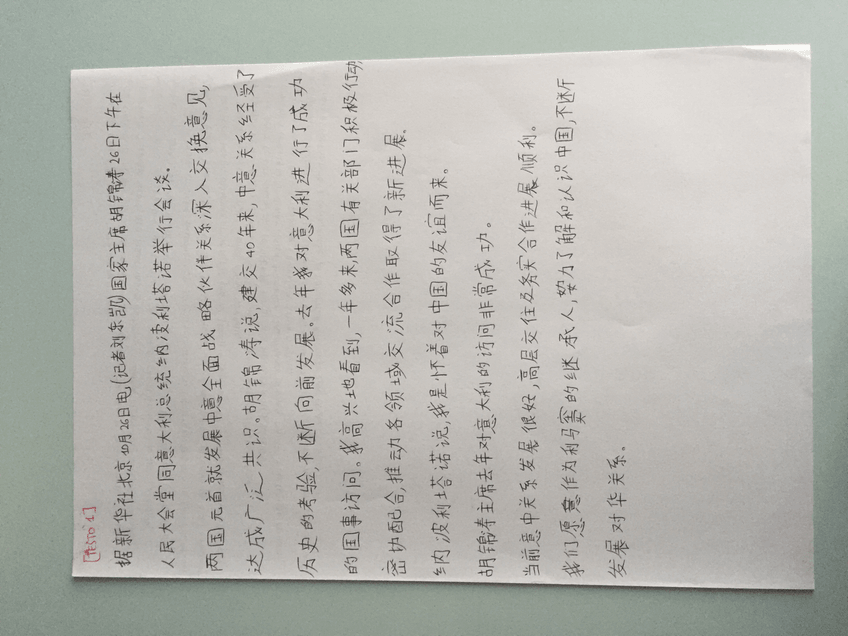 [TESTO 1]
据新华社北京10月26日电(记者刘东凯)国家主席胡锦涛26日下午在
人民大会堂同意大利总统纳波利塔诺举行会谈.
两国元首就发展中意全面战略伙伴关系深入交换意见,
达成广泛共识。胡锦涛说,建交40年来,中意关系经受了
历史的考验,不断向前发展。去年我对意大利进行了成功
的国事访问。我高兴地看到,一年多来,两国有关部门积极行动,
密切配合,推动各领域交流合作取得了新进展。
纳波利塔诺说,我是怀着对中国的友谊而来。
胡锦涛主席去年对意大利的访问非常成功。
当前意中关系发展很好,高层交往及务实合作进展顺利。
我们愿意作为利玛窦的继承人,努力了解和认识中国,不断
发展对华关系。